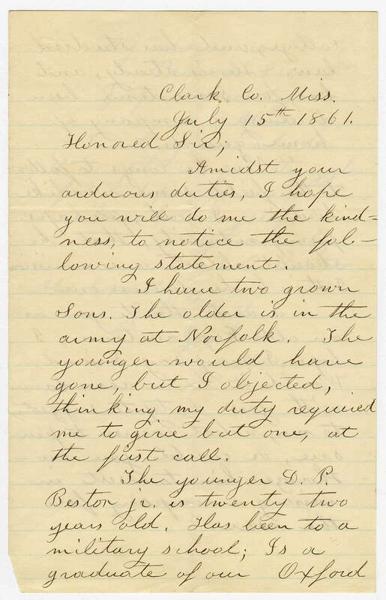 Clark Co. Miss.
July 15th 1861.
Honored Sir,
Amidst your
arduous duties, I hope
you will do me the kind=
ness, to notice the fol-
lowing statement.
I have two grown
Sons. The older is in the
army at Norfolk. The
younger would have
gone, but I objected,
thinking my duty required
me to give but one, at
the first call.
The younger D. P.
Bestor jr. is twenty two
years old. Has been to a
military school; Is a
graduate of our Oxford